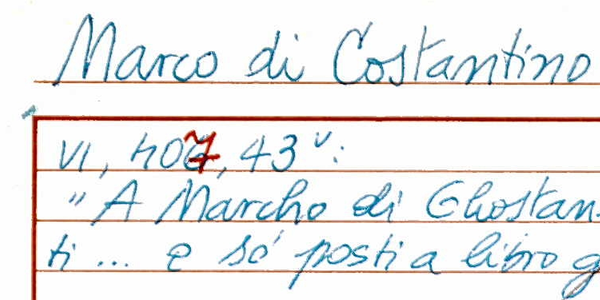 Marco di Costantino
VI, 407, 43ᵛ:
"A Marcho di Ghostan-
ti... e sò posti a libro g